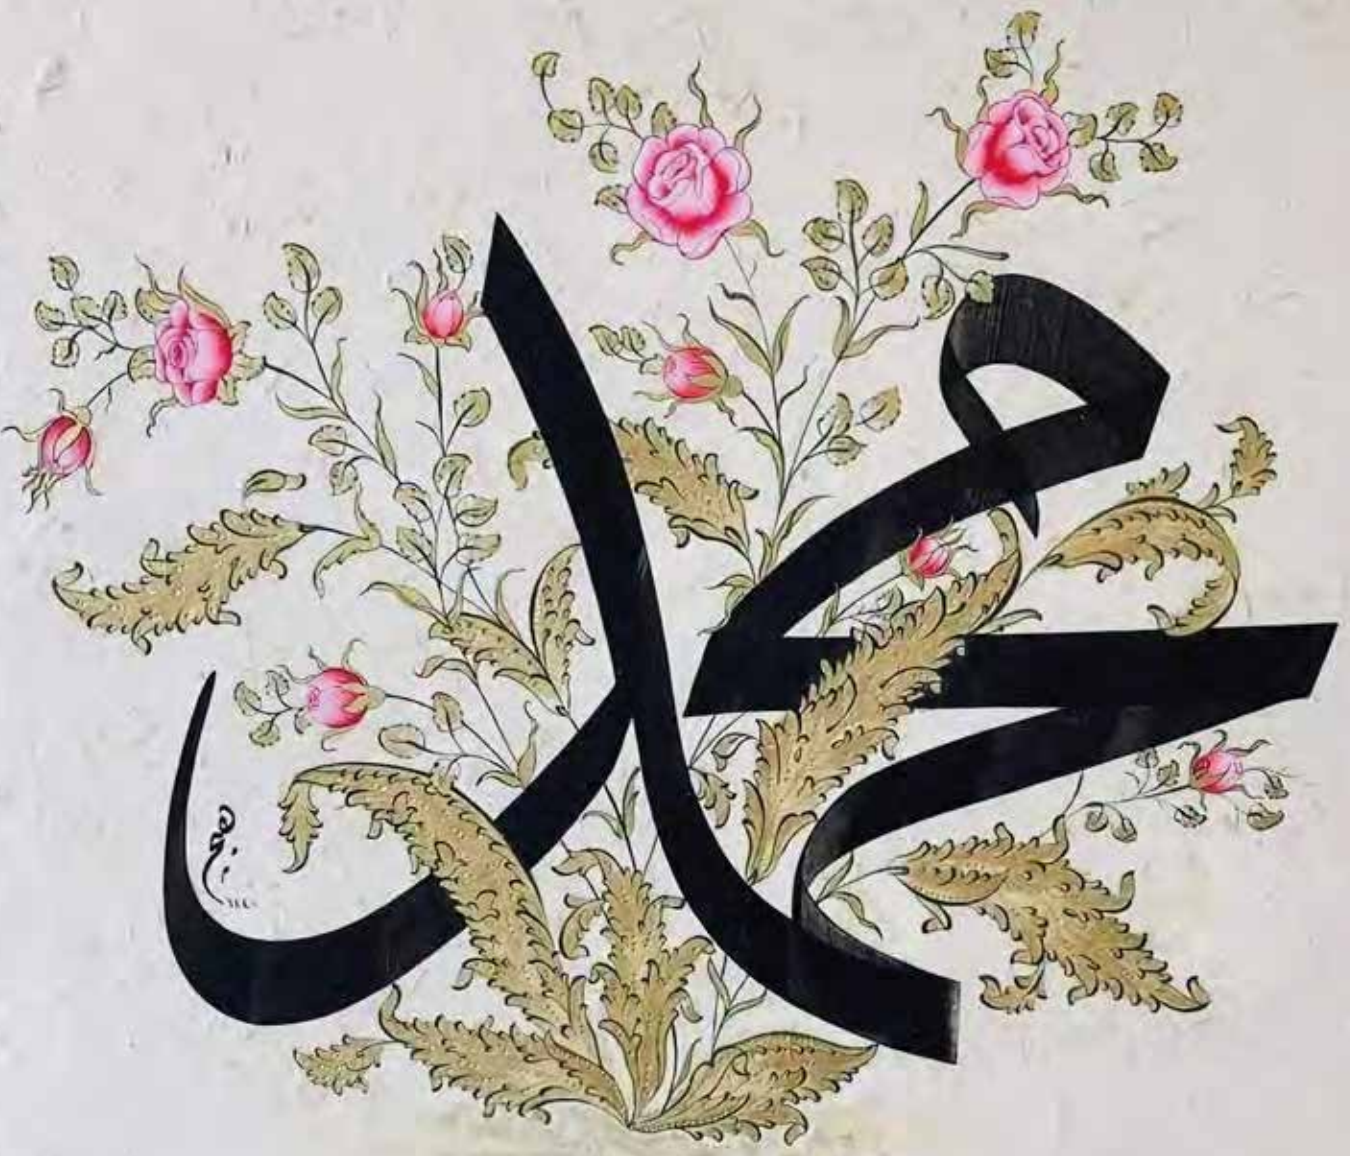 محمد